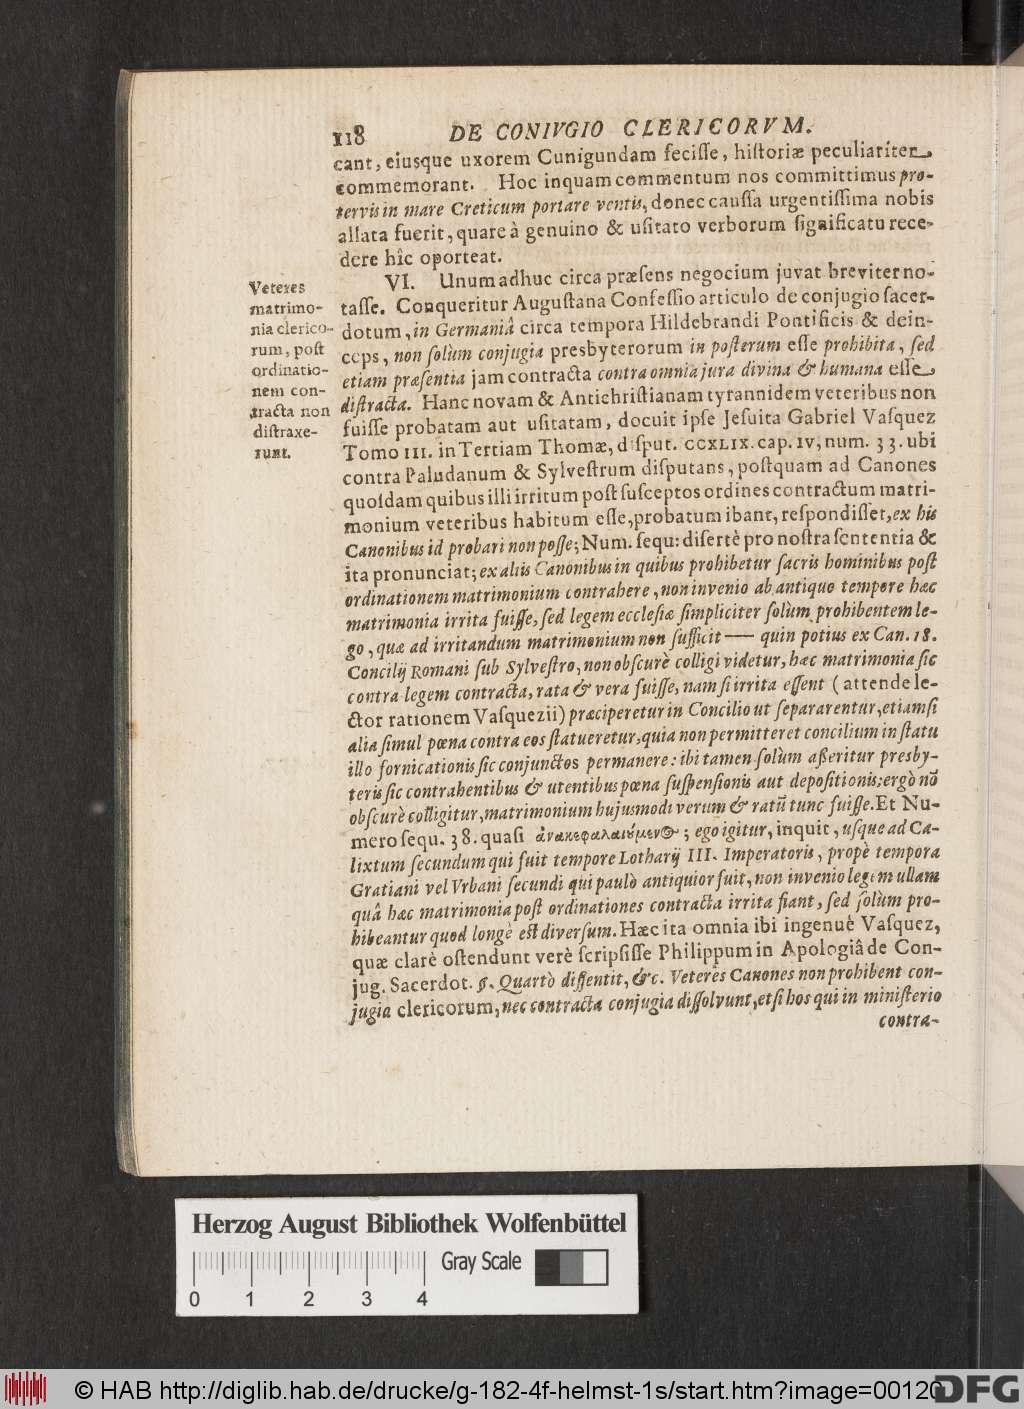 118 DE CONIVGIO CLERICORVM.
cant, eiusque uxorem Cunigundam feciſſe, hiſtoriæ peculiariter
commemorant. Hoc inquam commentum nos committimus pro-
tervis in mare Creticum portare ventis, donec cauſſa urgentiſſima nobis
allata fuerit, quare à genuino & uſitato verborum ſignificatu rece-
dere hîc oporteat.
VI. Unum adhuc circa præſens negocium juvat breviter no-
taſſe. Conqueritur Auguſtana Confeſſio articulo de conjugio ſacer-
dotum, in Germaniâ circa tempora Hildebrandi Pontificis & dein-
ceps, non ſolùm conjugia presbyterorum in poſterum eſſe prohibita, ſed
etiam præſentia jam contracta contra omnia jura divina & humana eſſe
diſtracta. Hanc novam & Antichriſtianam tyrannidem veteribus non
fuiſſe probatam aut uſitatam, docuit ipſe Jeſuita Gabriel Vaſquez
Tomo III. in Tertiam Thomæ, diſput. CCXLIX. cap. IV, num. 33. ubi
contra Paludanum & Sylveſtrum diſputans, poſtquam ad Canones
quoſdam quibus illi irritum poſt ſuſceptos ordines contractum matri-
monium veteribus habitum eſſe, probatum ibant, reſpondiſſet, ex his
Canonibus id probari non poſſe; Num. ſequ: diſertè pro noſtra ſententia &
ita pronunciat; ex aliis Canonibus in quibus prohibetur ſacris hominibus poſt
ordinationem matrimonium contrahere, non invenio ab antiquo tempore hæc
matrimonia irrita fuiſſe, ſed legem eccleſiæ ſimpliciter ſolùm prohibentem le-
go, quæ ad irritandum matrimonium non ſufficit — quin potius ex Can. 18.
Concilij Romani ſub Sylveſtro, non obſcurè colligi videtur, hæc matrimonia ſic
contra legem contracta, rata & vera fuiſſe, nam ſi irrita eſſent (attende le-
ctor rationem Vaſquezii) præciperetur in Concilio ut ſepararentur, etiamſi
alia ſimul pœna contra eos ſtatueretur, quia non permitteret concilium in ſtatu
illo fornicationis ſic conjunctos permanere: ibi tamen ſolùm aſſeritur presby-
teris ſic contrahentibus & utentibus pœna ſuſpenſionis aut depoſitionis; ergò nō
obſcurè colligitur, matrimonium hujusmodi verum & ratū tunc fuiſſe. Et Nu-
mero ſequ. 38. quaſi ἀνακεφαλαιούμενος; ego igitur, inquit, uſque ad Ca-
lixtum ſecundum qui fuit tempore Lotharij III. Imperatoris, propè tempora
Gratiani vel Vrbani ſecundi qui paulò antiquior fuit, non invenio legem ullam
quâ hæc matrimonia poſt ordinationes contracta irrita fiant, ſed ſolùm pro-
hibeantur quod longè eſt diverſum. Hæc ita omnia ibi ingenuè Vaſquez,
quæ clarè oſtendunt verè ſcripſiſſe Philippum in Apologiâ de Con-
jug. Sacerdot. §. Quartò diſſentit, &c. Veteres Canones non prohibent con-
jugia clericorum, nec contracta conjugia diſſolvunt, etſi hos qui in miniſterio
contra-
Veteres
matrimo-
nia clerico-
rum, poſt
ordinatio-
nem con-
tracta non
diſtraxe-
runt.
Herzog August Bibliothek Wolfenbüttel
Gray Scale
0 1 2 3 4
© HAB http://diglib.hab.de/drucke/g-182-4f-helmst-1s/start.htm?image=00120
DFG